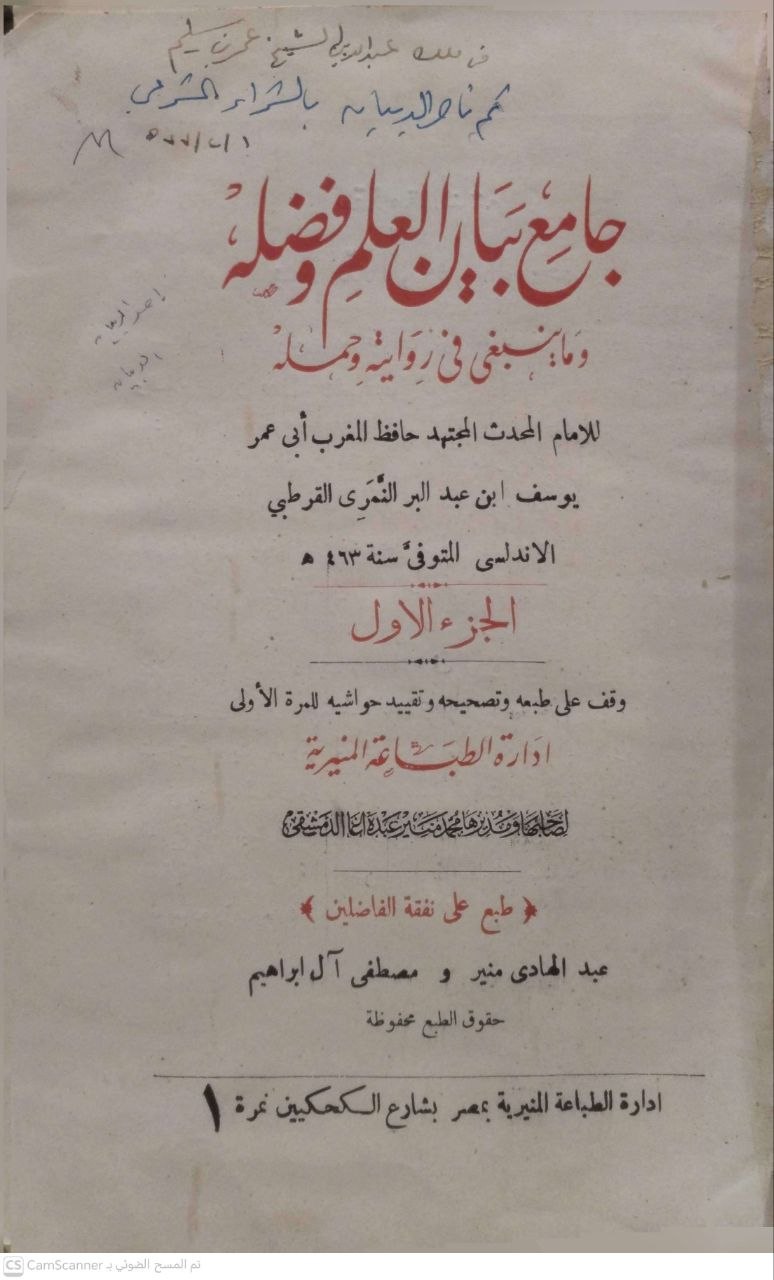 في ملك عبدالله الشيخ عمر بن سليم
ثم ناصر بالشراء الشرعي
جامع بيان العلم وفضله
وما ينبغى فى روايته وحمله
للامام المحدث المجتهد حافظ المغرب أبى عمر
يوسف ابن عبد البر النَّمَرِى القرطبي
الاندلسى المتوفىَّ سنة ٤٦٣ ﻫ
الجزء الاول
وقف على طبعه وتصحيحه وتقييد حواشيه للمرة الأولى
ادارة الطباعة المنيرية
لصاحبها ومديرها محمد منير عبده اغا الدمشقى
﴿ طبع على نفقة الفاضلين ﴾
عبد الهادى منير و مصطفى آل ابراهيم
حقوق الطبع محفوظة
ادارة الطباعة المنيرية بمصر بشارع الكحكيين نمرة ١
CS CamScanner تم المسح الضوئي بـ